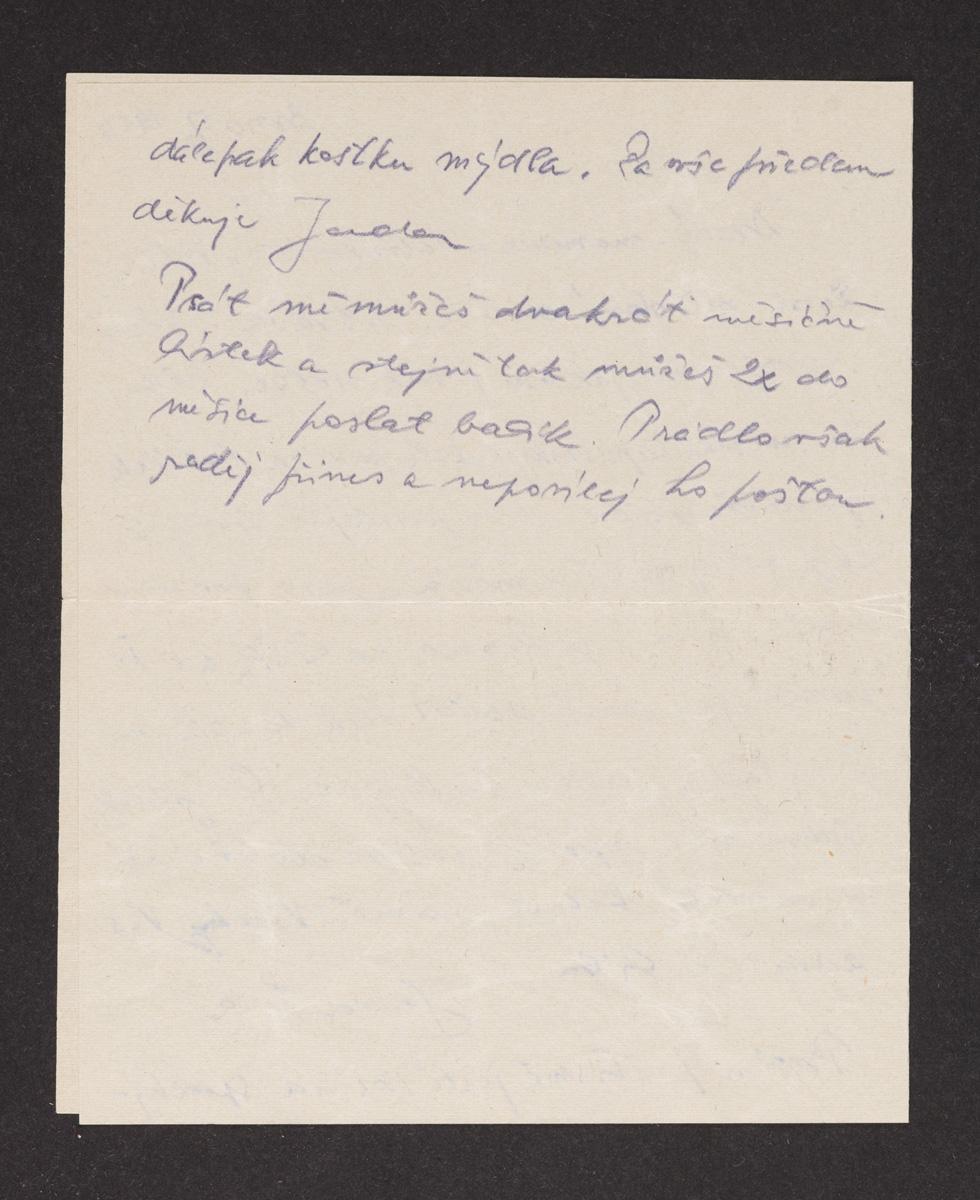 dále pak kostku mýdla. Za vše předem
děkuje Jarda
Psát mě můžeš dvakrát měsíčně
lístek a stejně tak můžeš 2x do
měsíce poslat balík. Prádlo však
raděj přines a neposílej ho poštou.